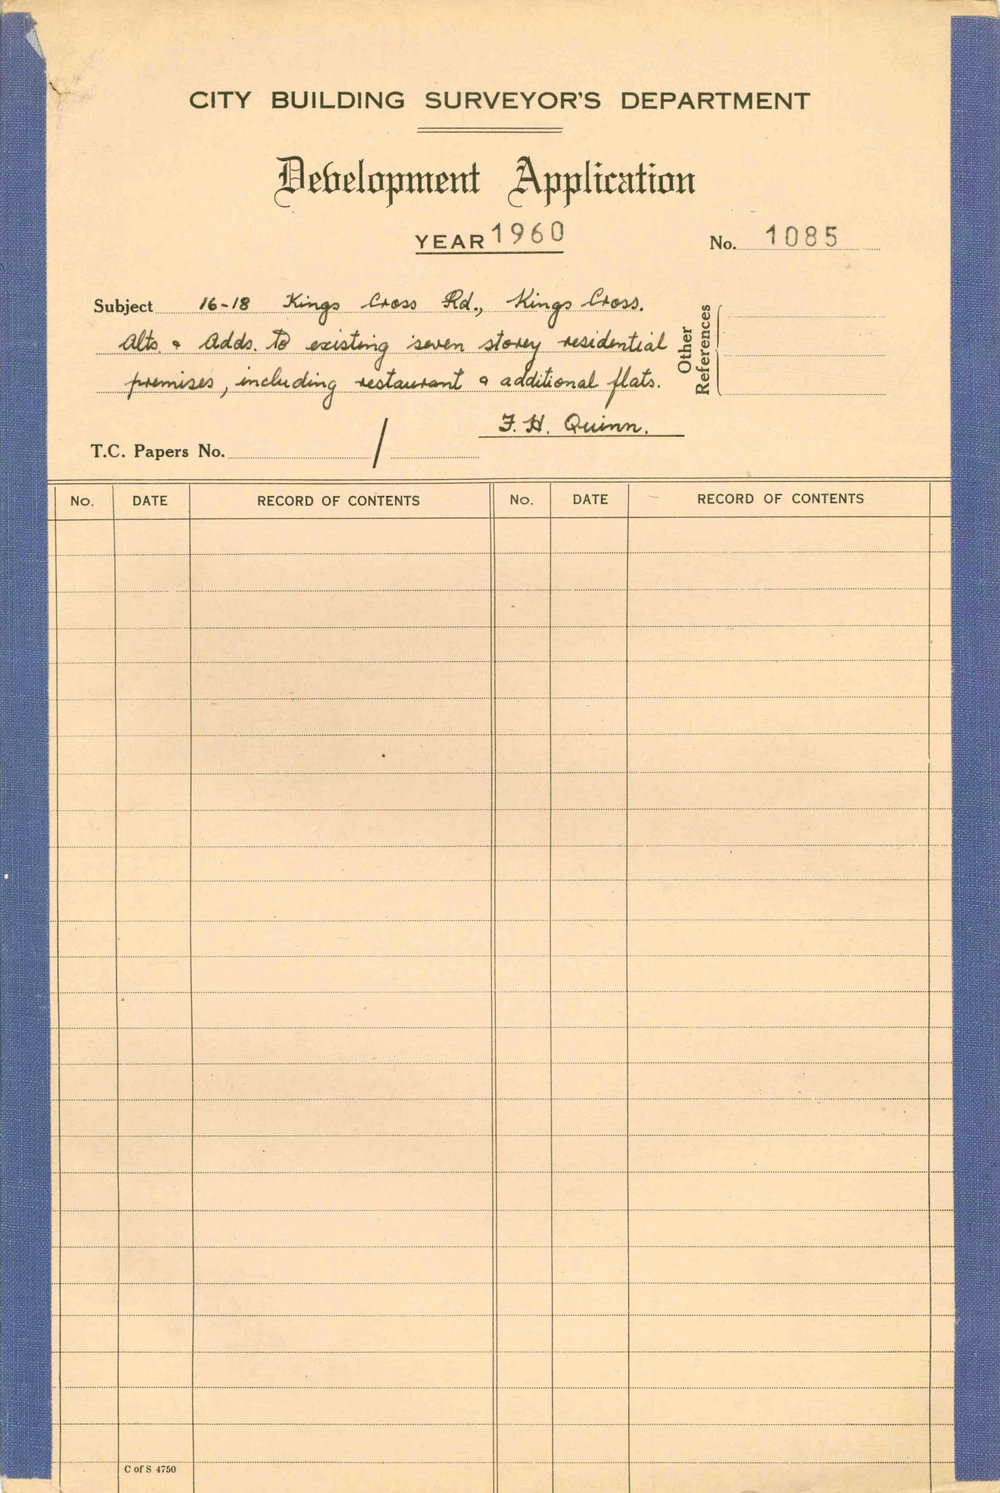 CITY BUILDING SURVEYOR'S DEPARTMENT
Development Application
YEAR 1960 No. 1085
Subject 16-18 Kings Cross Rd., Kings Cross.
Alts. & Adds. to existing seven storey residential
premises, including restaurant & additional flats.
Other References
F. H. Quinn.
T.C. Papers No. /
No. DATE RECORD OF CONTENTS No. DATE RECORD OF CONTENTS
C of S 4750